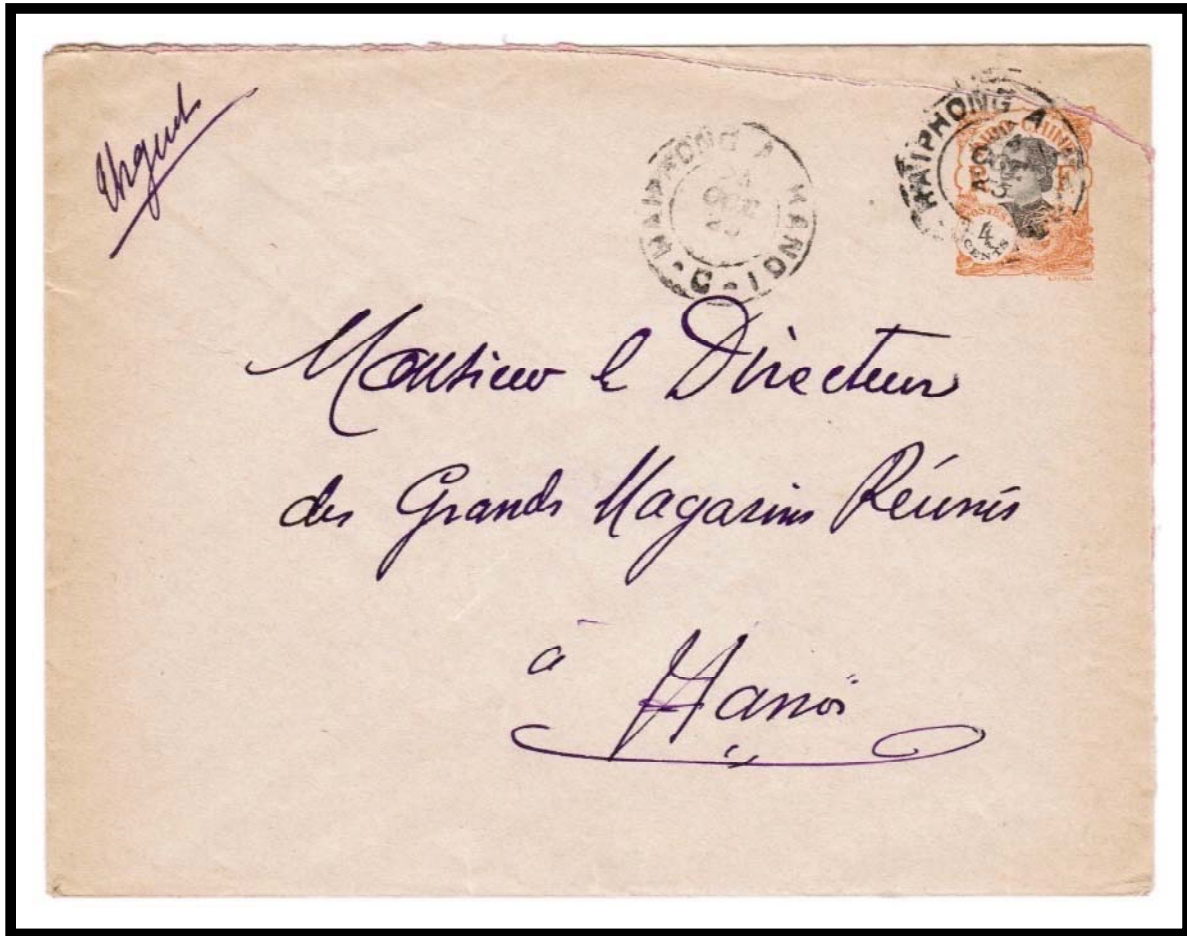 Urgent
HAIPHONG A HANOI
C
HAIPHONG A
INDO-CHINE
POSTES
4
CENTS
Monsieur le Directeur
des Grands Magasins Réunis
à
Hanoï